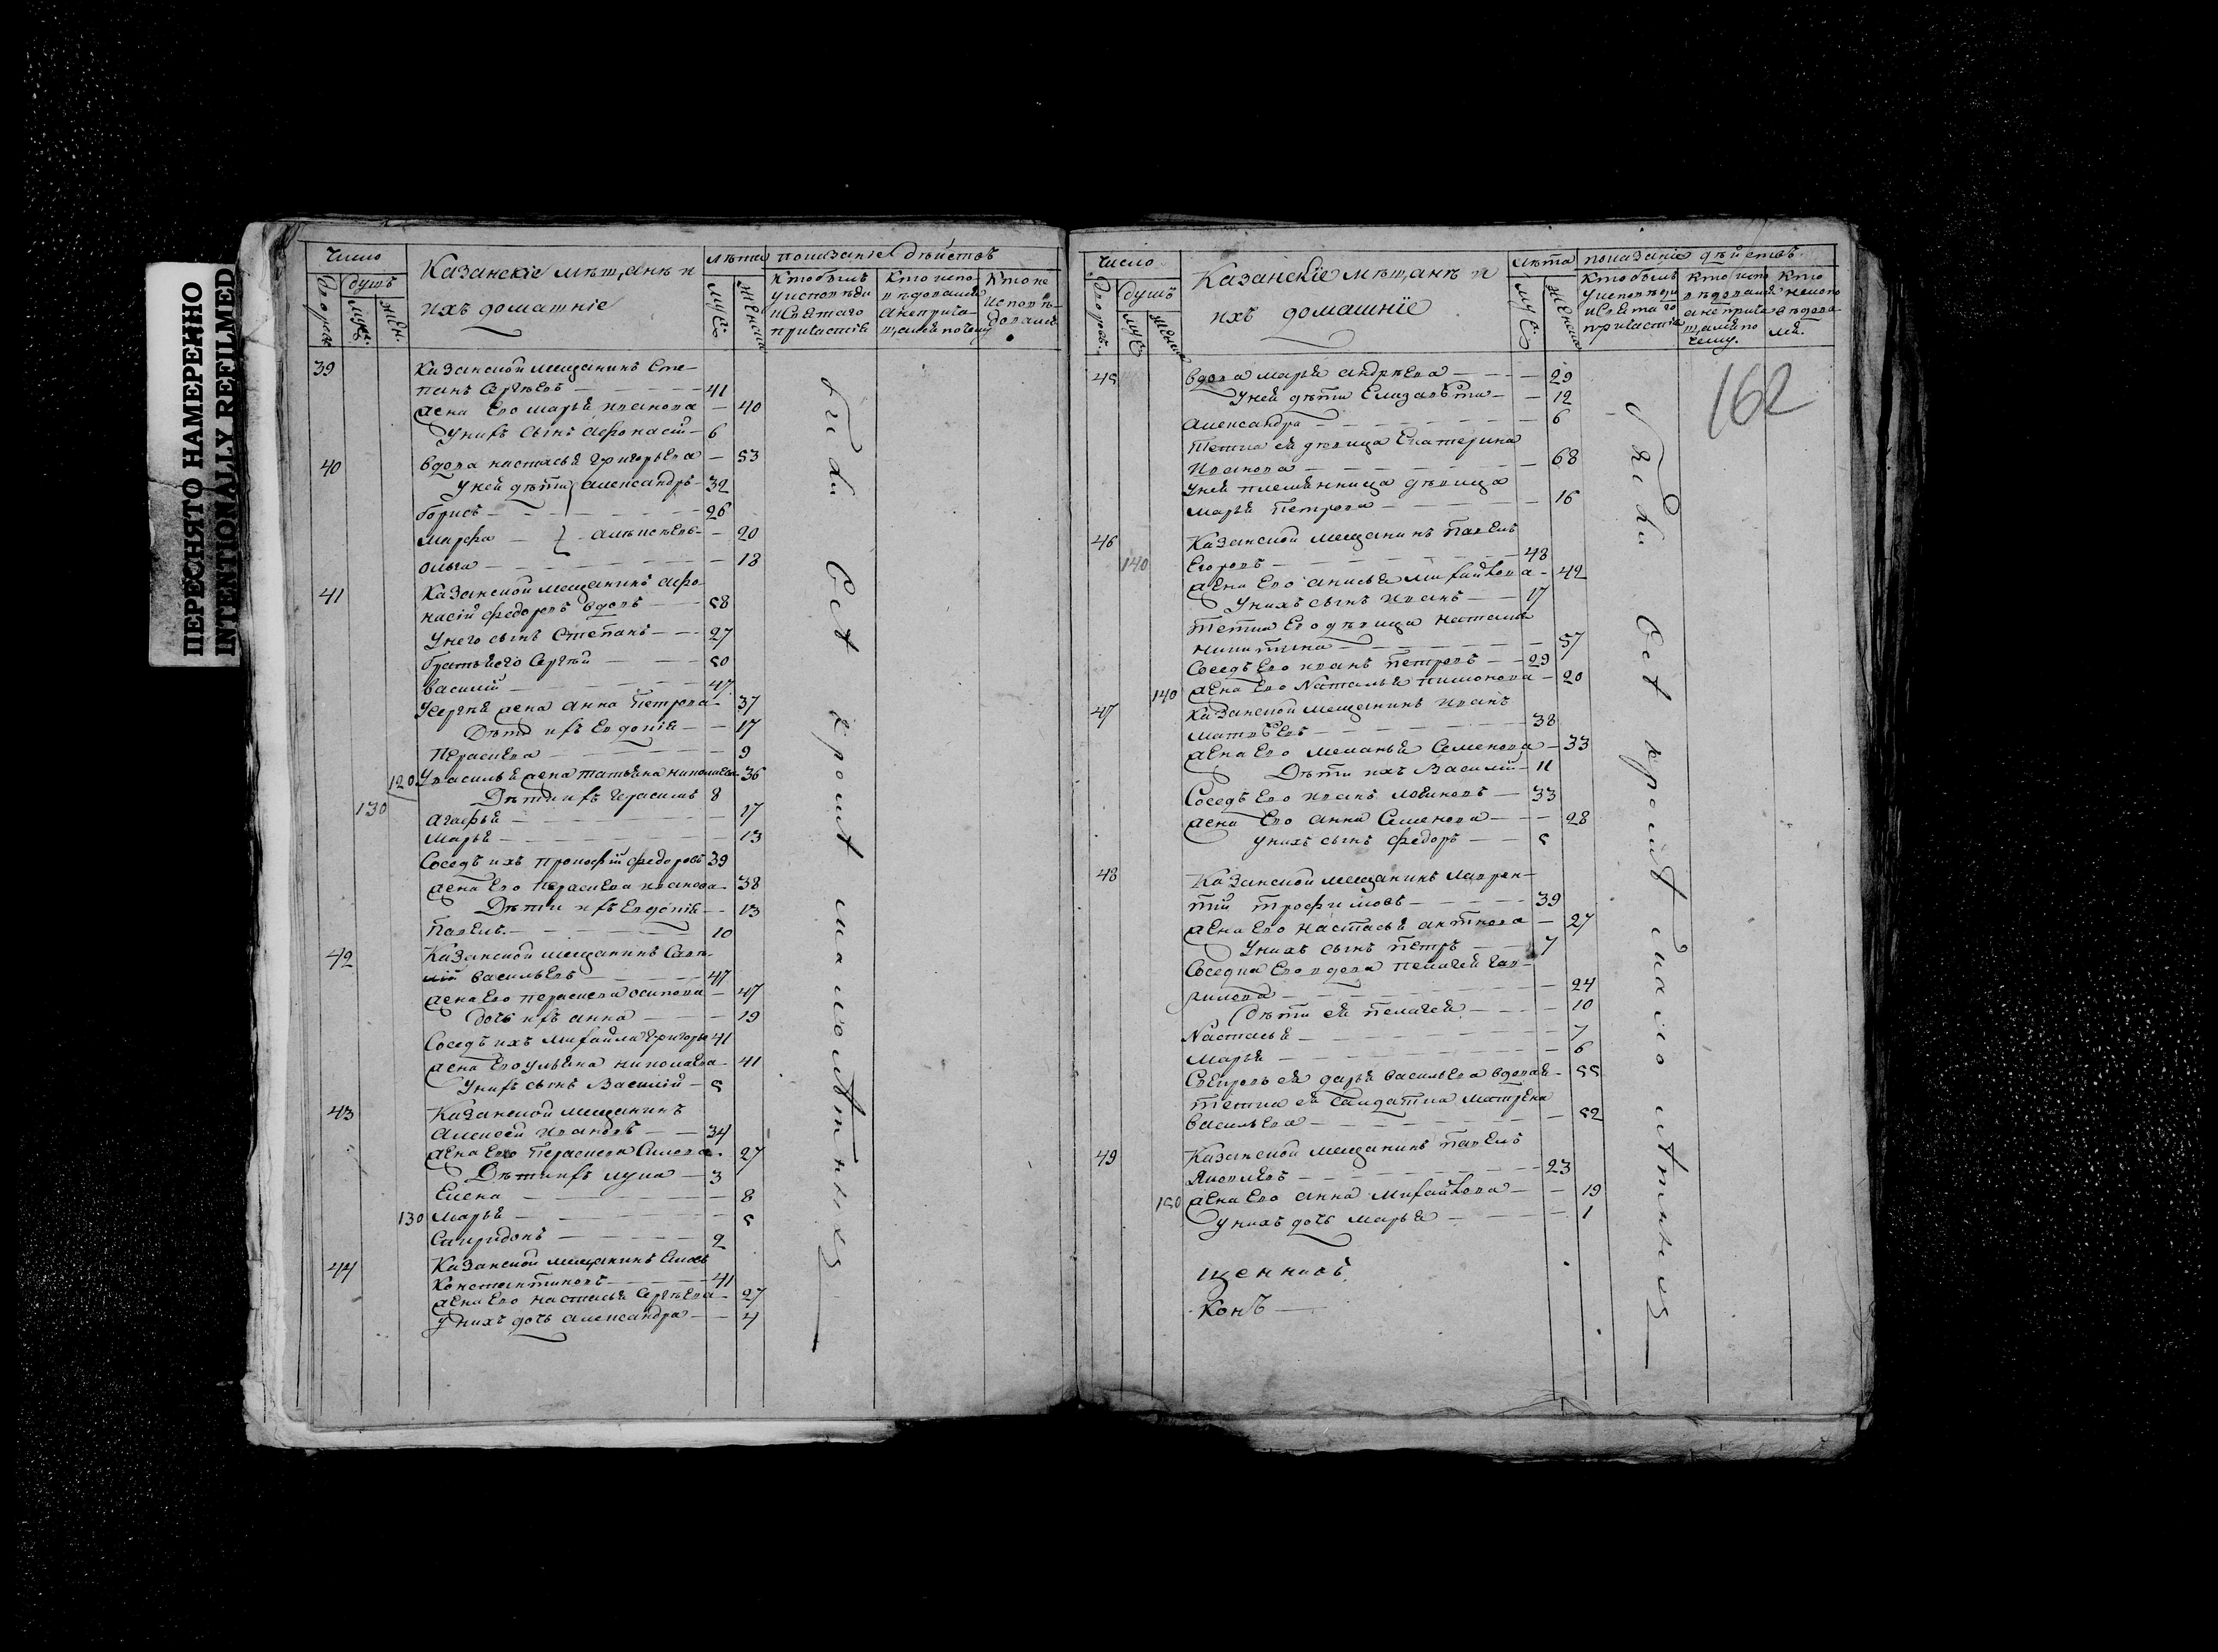 ПЕРЕСНЯТО НАМЕРЕННО
INTENTIONALLY REFILMED
Число
дворовъ
душъ
муж.
жен.
Казанскіе мѣщанѣ и
ихъ домашніе
лѣта
муж
женска
показаніе дѣйствъ
Кто былъ
у исповѣди
и святаго
причастія
Кто испо-
вѣдовался
а непріча-
щался почему
Кто не
исповѣ-
довался
39 Казанской мещанинъ Сте-
панъ Сергѣевъ 41
жена Его марья иванова 40
У нихъ сынъ афонасій 6
40 вдова настасья Григорьева 53
У ней дѣти александръ 32
борисъ 26
марфа алѣксѣевы 20
ольга 18
41 Казанской мещанинъ афо-
насій федоровъ вдовъ 58
У него сынъ Степанъ 27
братья его Сергѣй 50
василій 47
У Сергѣя жена анна Петрова 37
Дѣти ихъ Евдокія 17
Прасковья 9
120 У василья жена татьяна николаева 36
130 Дѣти ихъ Герасимъ 8
агафья 17
марья 13
Соседъ ихъ прокофій федоровъ 39
жена Его прасковья иванова 38
Дѣти ихъ Евдокія 13
Павелъ 10
42 Казанской мещанинъ Саве-
лій васильевъ 47
жена Его прасковья осипова 47
дочь ихъ анна 19
Соседъ ихъ михайла Григорье 41
жена Его ульяна николаева 41
У нихъ сынъ Василій 5
43 Казанской мещанинъ
алексей ивановъ 34
жена Его Прасковья 27
Дѣти ихъ лука 3
Елена 8
130 марья 5
Спиридонъ 2
44 Казанской мещанинъ
Константиновъ 41
жена Его настасья Сергѣева 27
У нихъ дочь александра 4
всѣ кромѣ малолѣтныхъ
Число
дворов.
душъ
муж
женск
Казанскіе мѣщанѣ и
ихъ домашніе
лѣта
муж.
женска
показаніе дѣйствъ.
Кто былъ
у исповѣди
и святаго
причастія
Кто испо
вѣдовался
а непріча
щался по
чему.
Кто
неиспо
вѣдова
лся.
162
45 вдова марья андрѣева 29
У ней дѣти Елизавѣта 12
александра 6
тетка ея дѣвица Екатерина
Иванова 68
У ней племянница дѣвица
марья Петрова 16
46 Казанской мещанинъ Павелъ
140 Егоровъ 48
жена Его анисья михайлова 42
У нихъ сынъ иванъ 17
тетка Его дѣвица наталья
никитина 57
Соседъ Его иванъ петровъ 29
140 жена Его Наталья 20
47 Казанской мещанинъ иванъ
матвѣевъ 38
жена Его меланья Семенова 33
Дѣти ихъ Василій 11
Соседъ Его иванъ логиновъ 33
жена Его анна Семенова 28
у нихъ сынъ федоръ 5
48 Казанской мещанинъ лаврен-
тій трофимовъ 39
жена Его настасья антнова 27
У нихъ сынъ петръ 7
Соседка Его вдова пелагея гав-
рилова 24
дѣти ея пелагея 10
Настасья 7
марья 6
Свекровь ея дарья васильева вдова 55
тетка ея салдатка матрена
васильева 52
49 Казанской мещанинъ павелъ
Яковлевъ 23
150 жена Его анна михайлова 19
у нихъ дочь марья 1
щенникъ
Конъ
всѣ кромѣ малолѣтныхъ